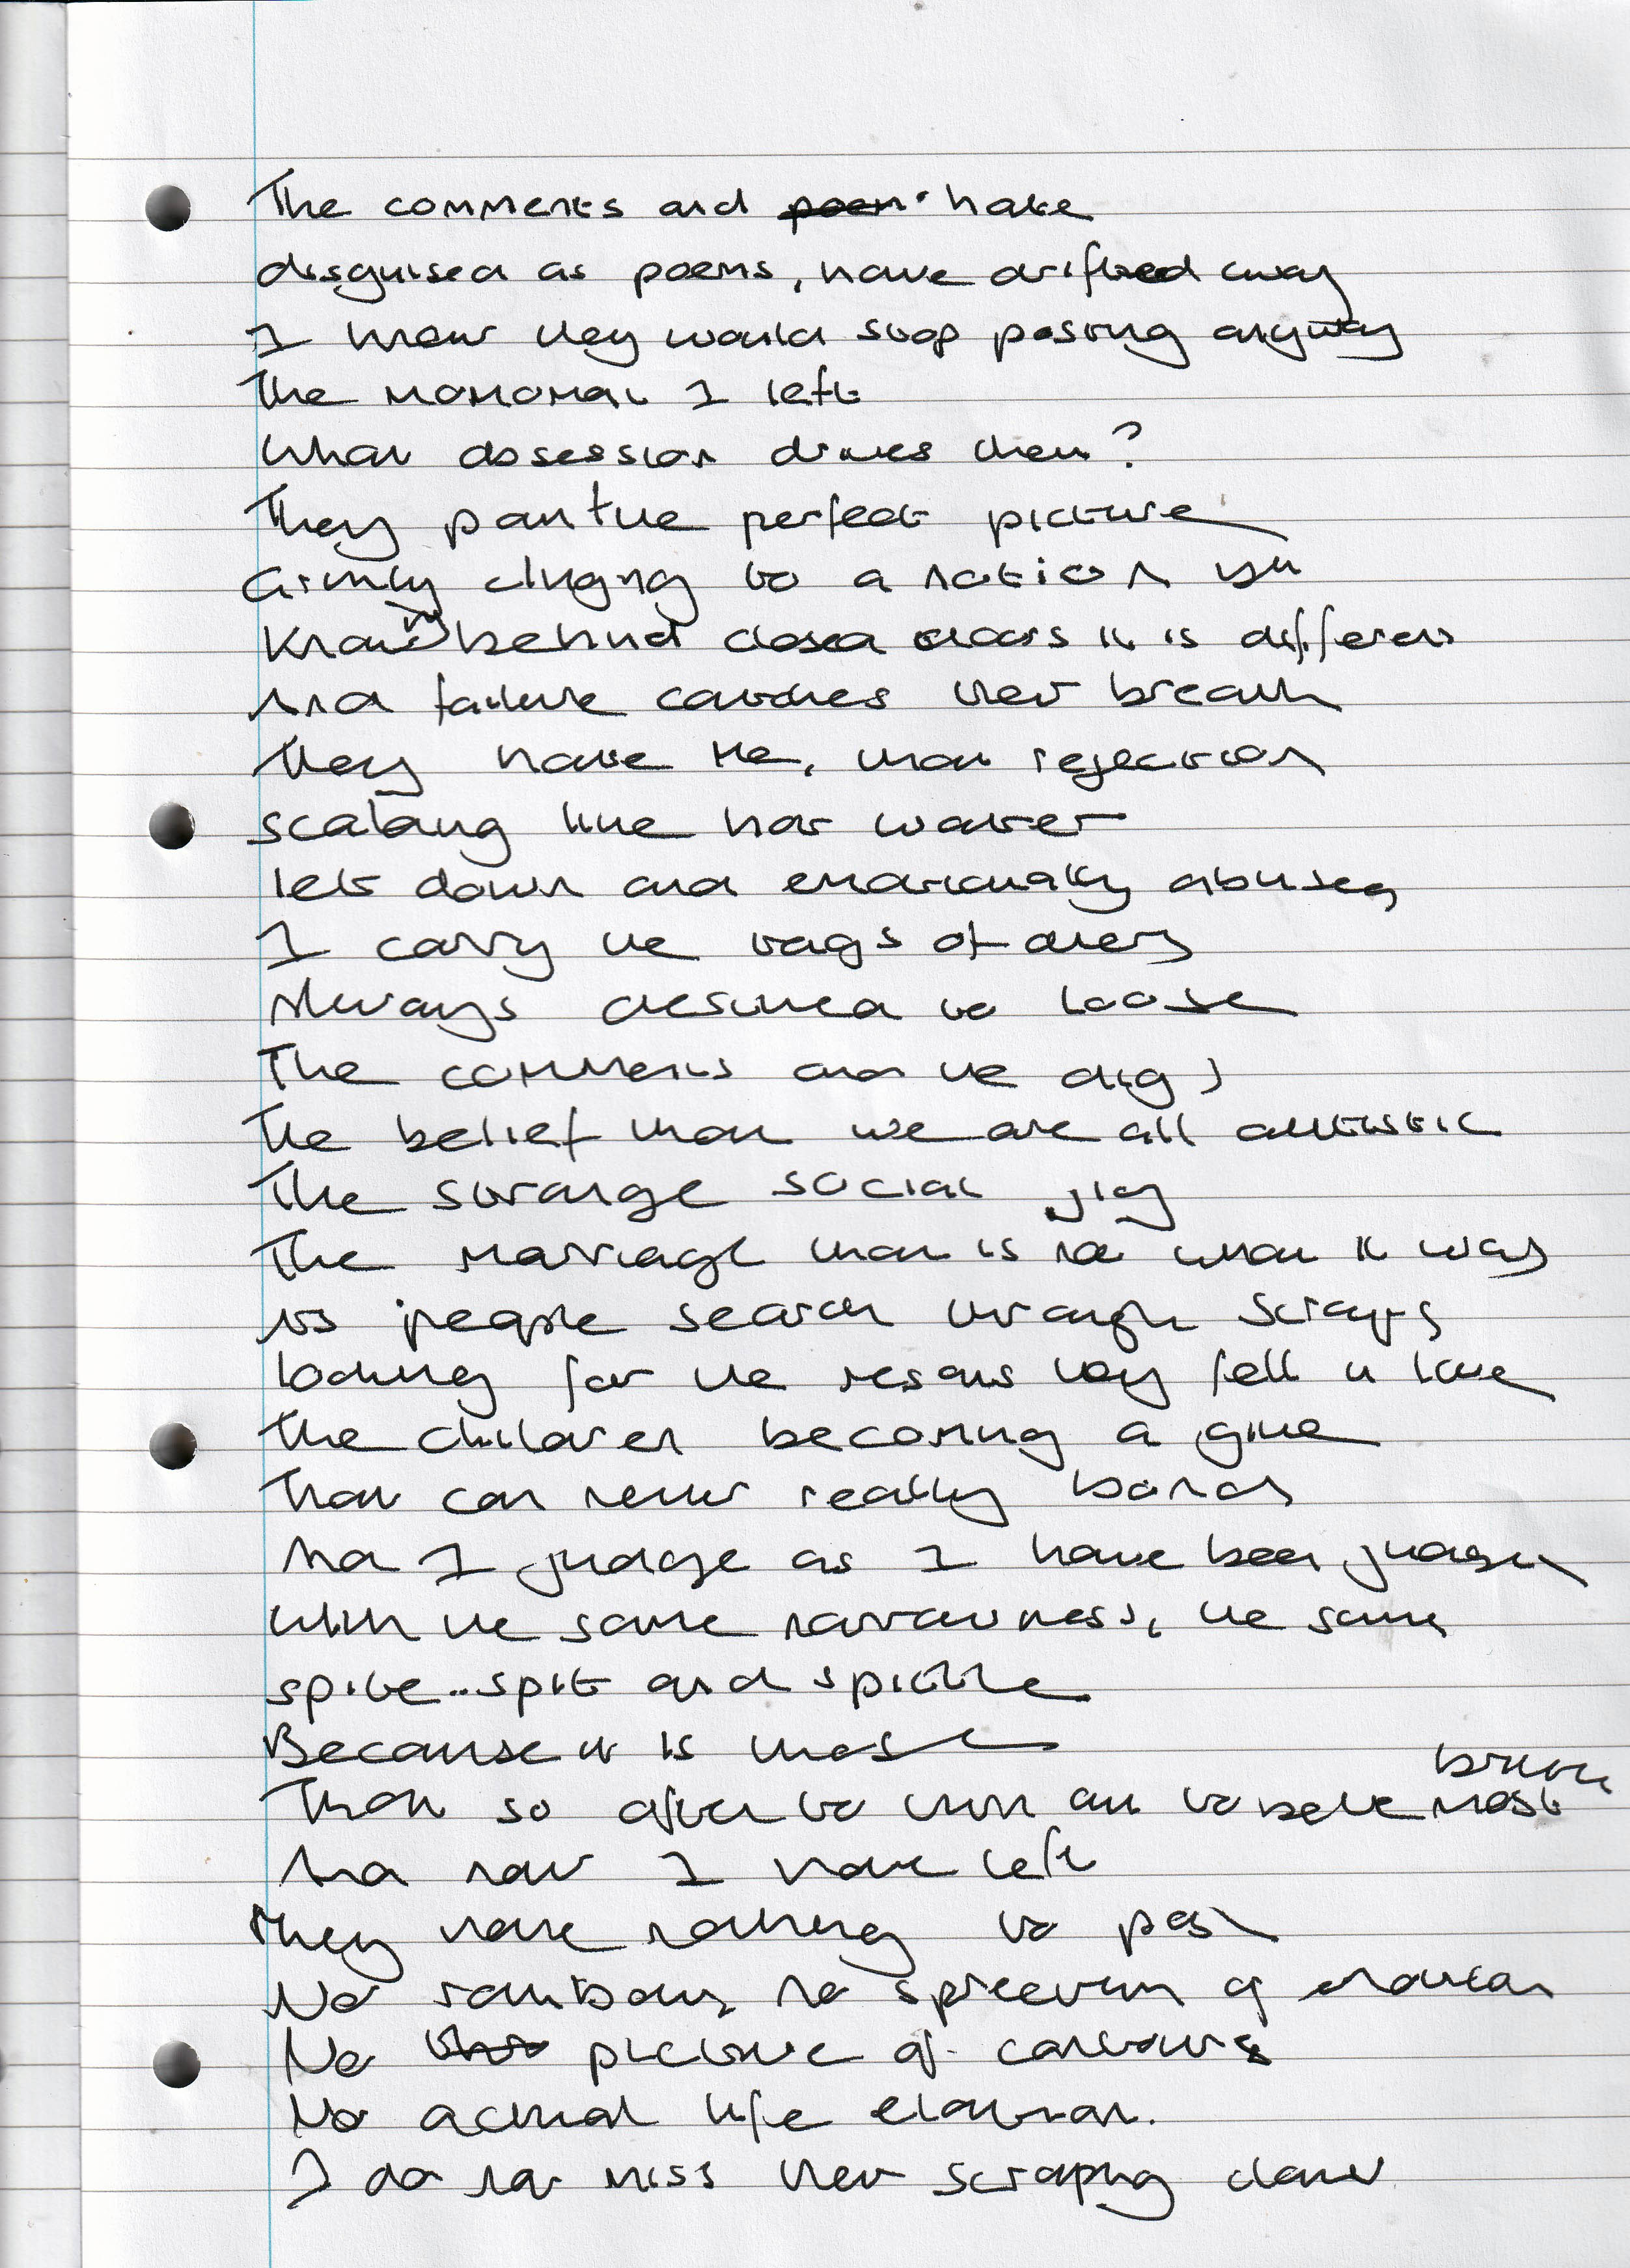 The comments and poem hate
disguised as poems, have drifted away
I knew they would stop posting anyway
The moment I left
What obsession drives them?
They paint the perfect picture
Grimly clinging to a notion you
Know behind closed doors it is different
And failure catches their breath
They hate me, that rejection
scalding like hot water
left down and emotionally abused
I carry the tags of others
Always destined to loose
The comments and the digs
The belief that we are all autistic
The strange social jig
The marriage that is not what it was
As people search through scraps
looking for the reasons they fell in love
The children becoming a glue
That can never really bond
And I judge as I have been judged
With the same narrowness, the same
spite..spit and spittle
Because it is those
That so often to turn out to be the most broken
And now I have left
They have nothing to post
No rainbows, no spectrum of emotion
No picture of cartoons
No actual life elation.
I do not miss their scraping claws